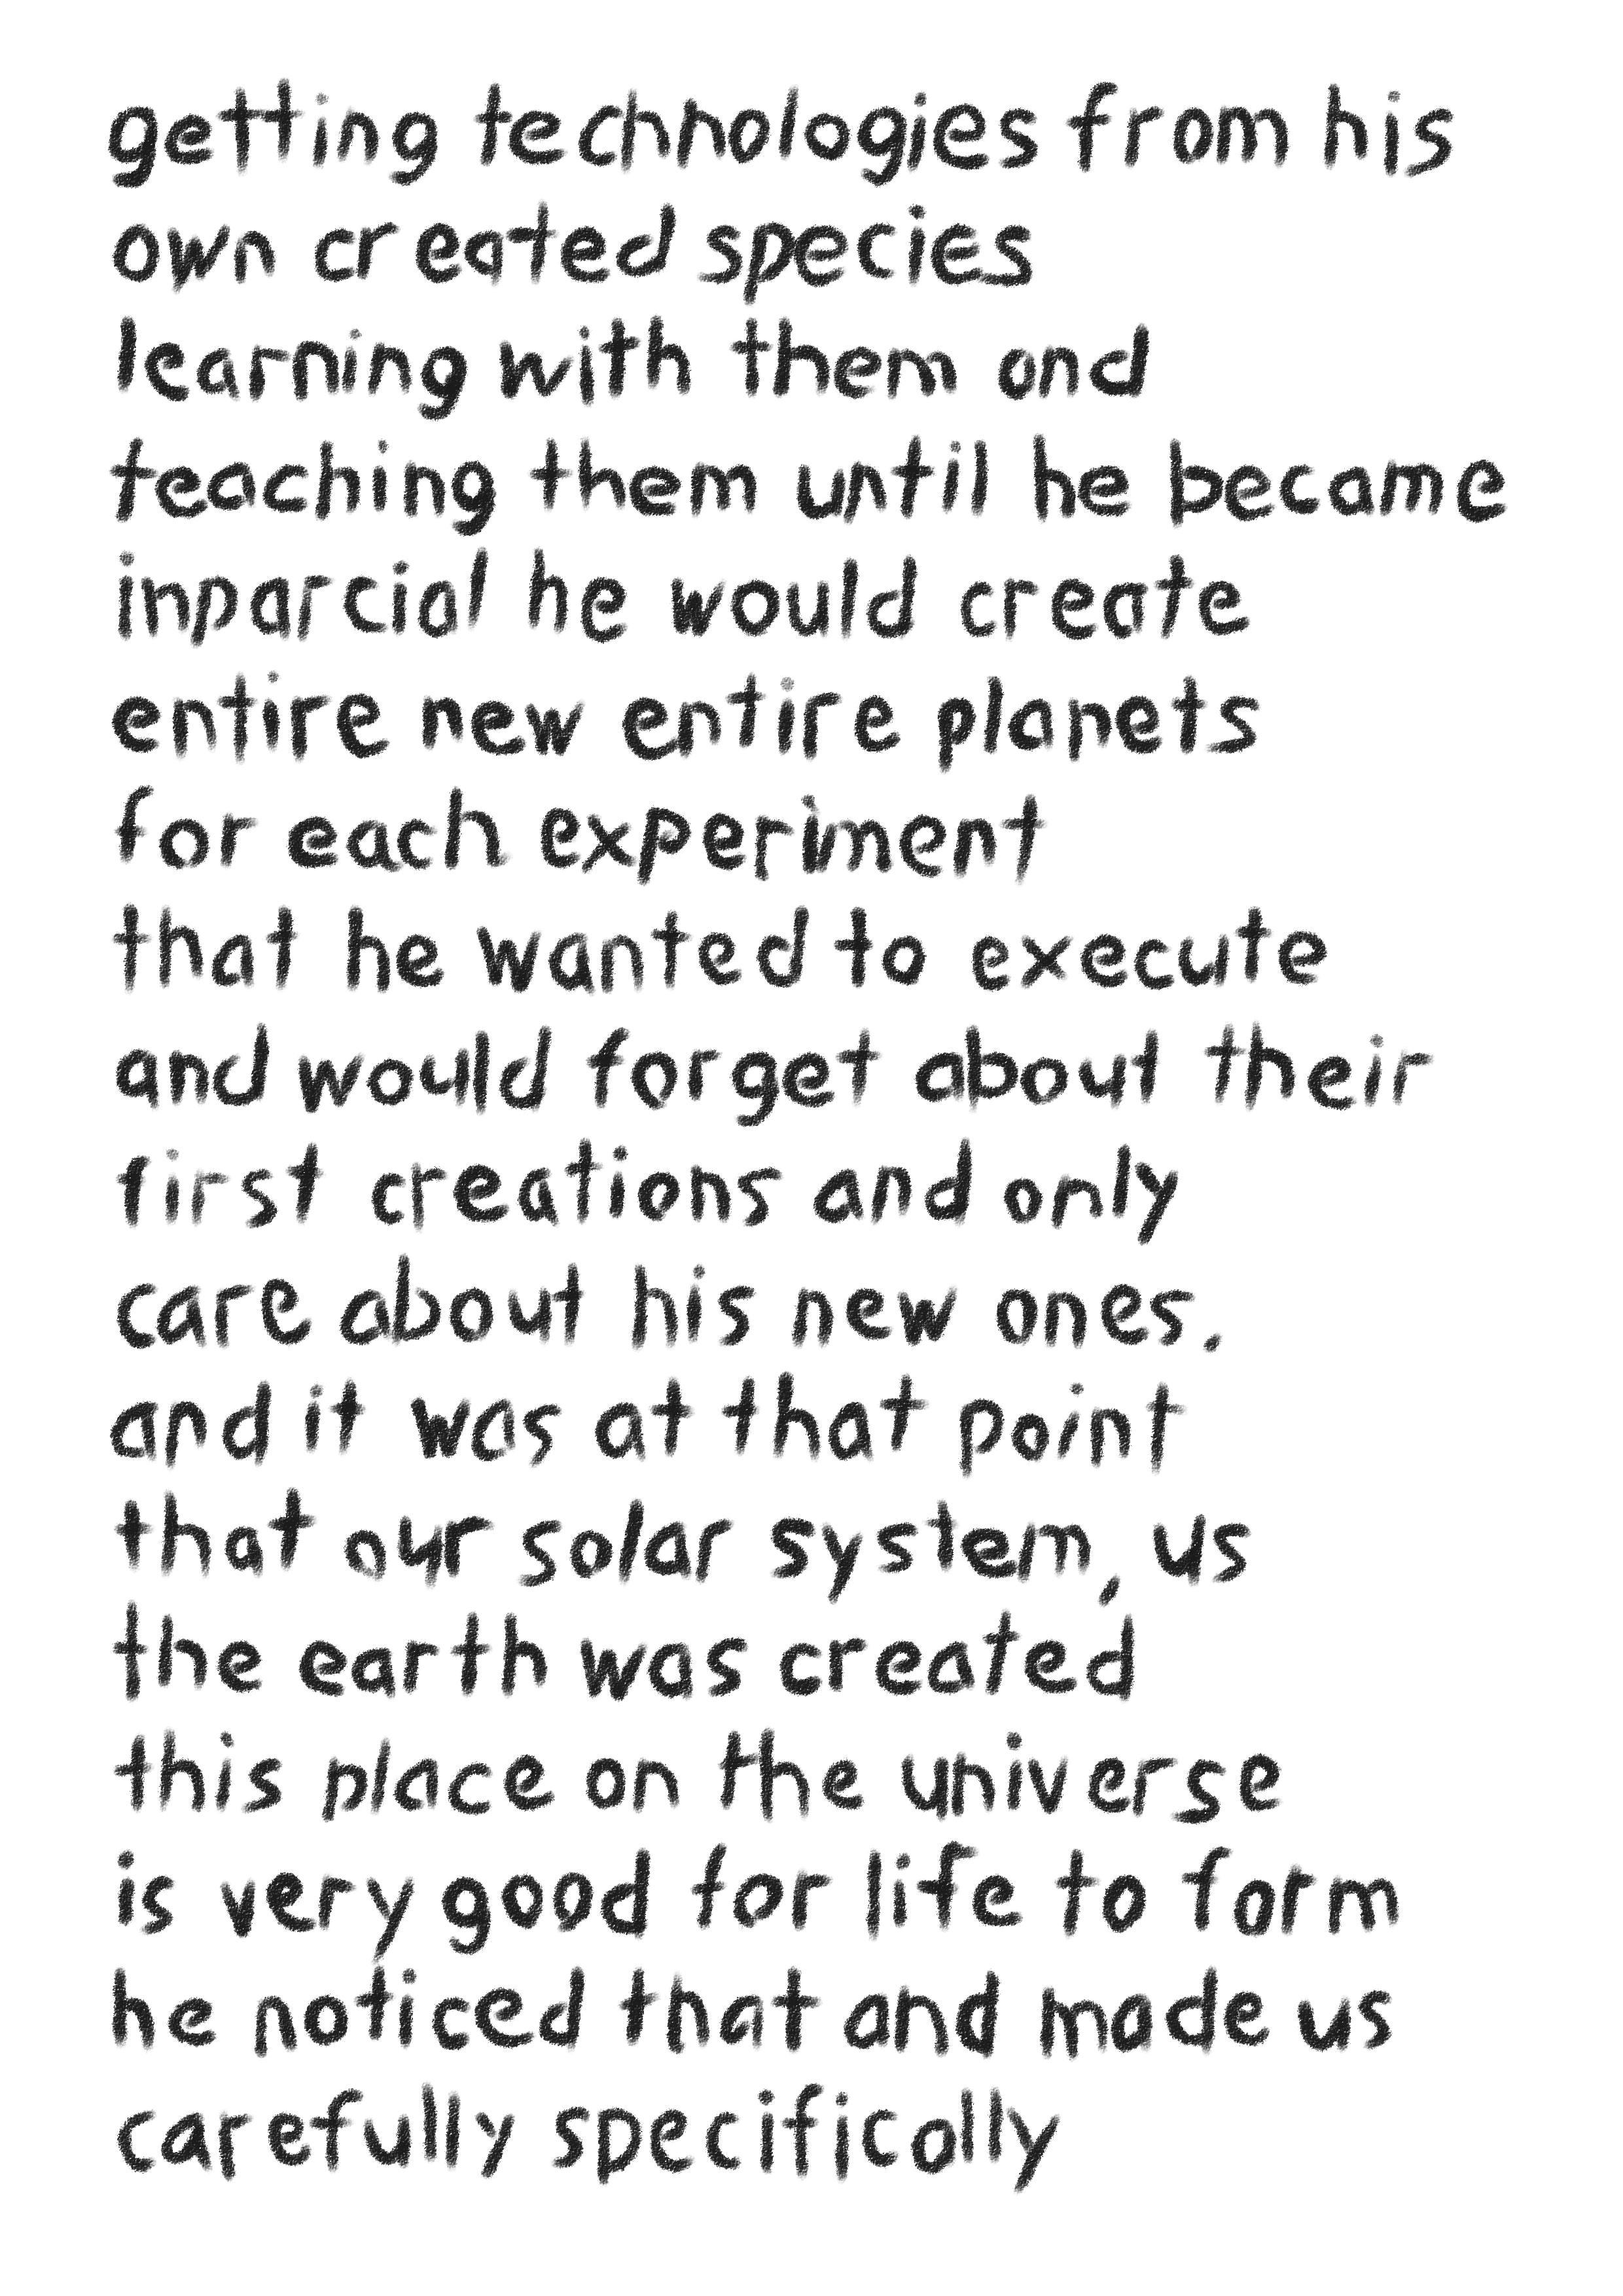 getting technologies from his
own created species
learning with them and
teaching them until he became
inparcial he would create
entire new entire planets
for each experiment
that he wanted to execute
and would forget about their
first creations and only
care about his new ones.
and it was at that point
that our solar system, us
the earth was created
this place on the universe
is very good for life to form
he noticed that and made us
carefully specifically